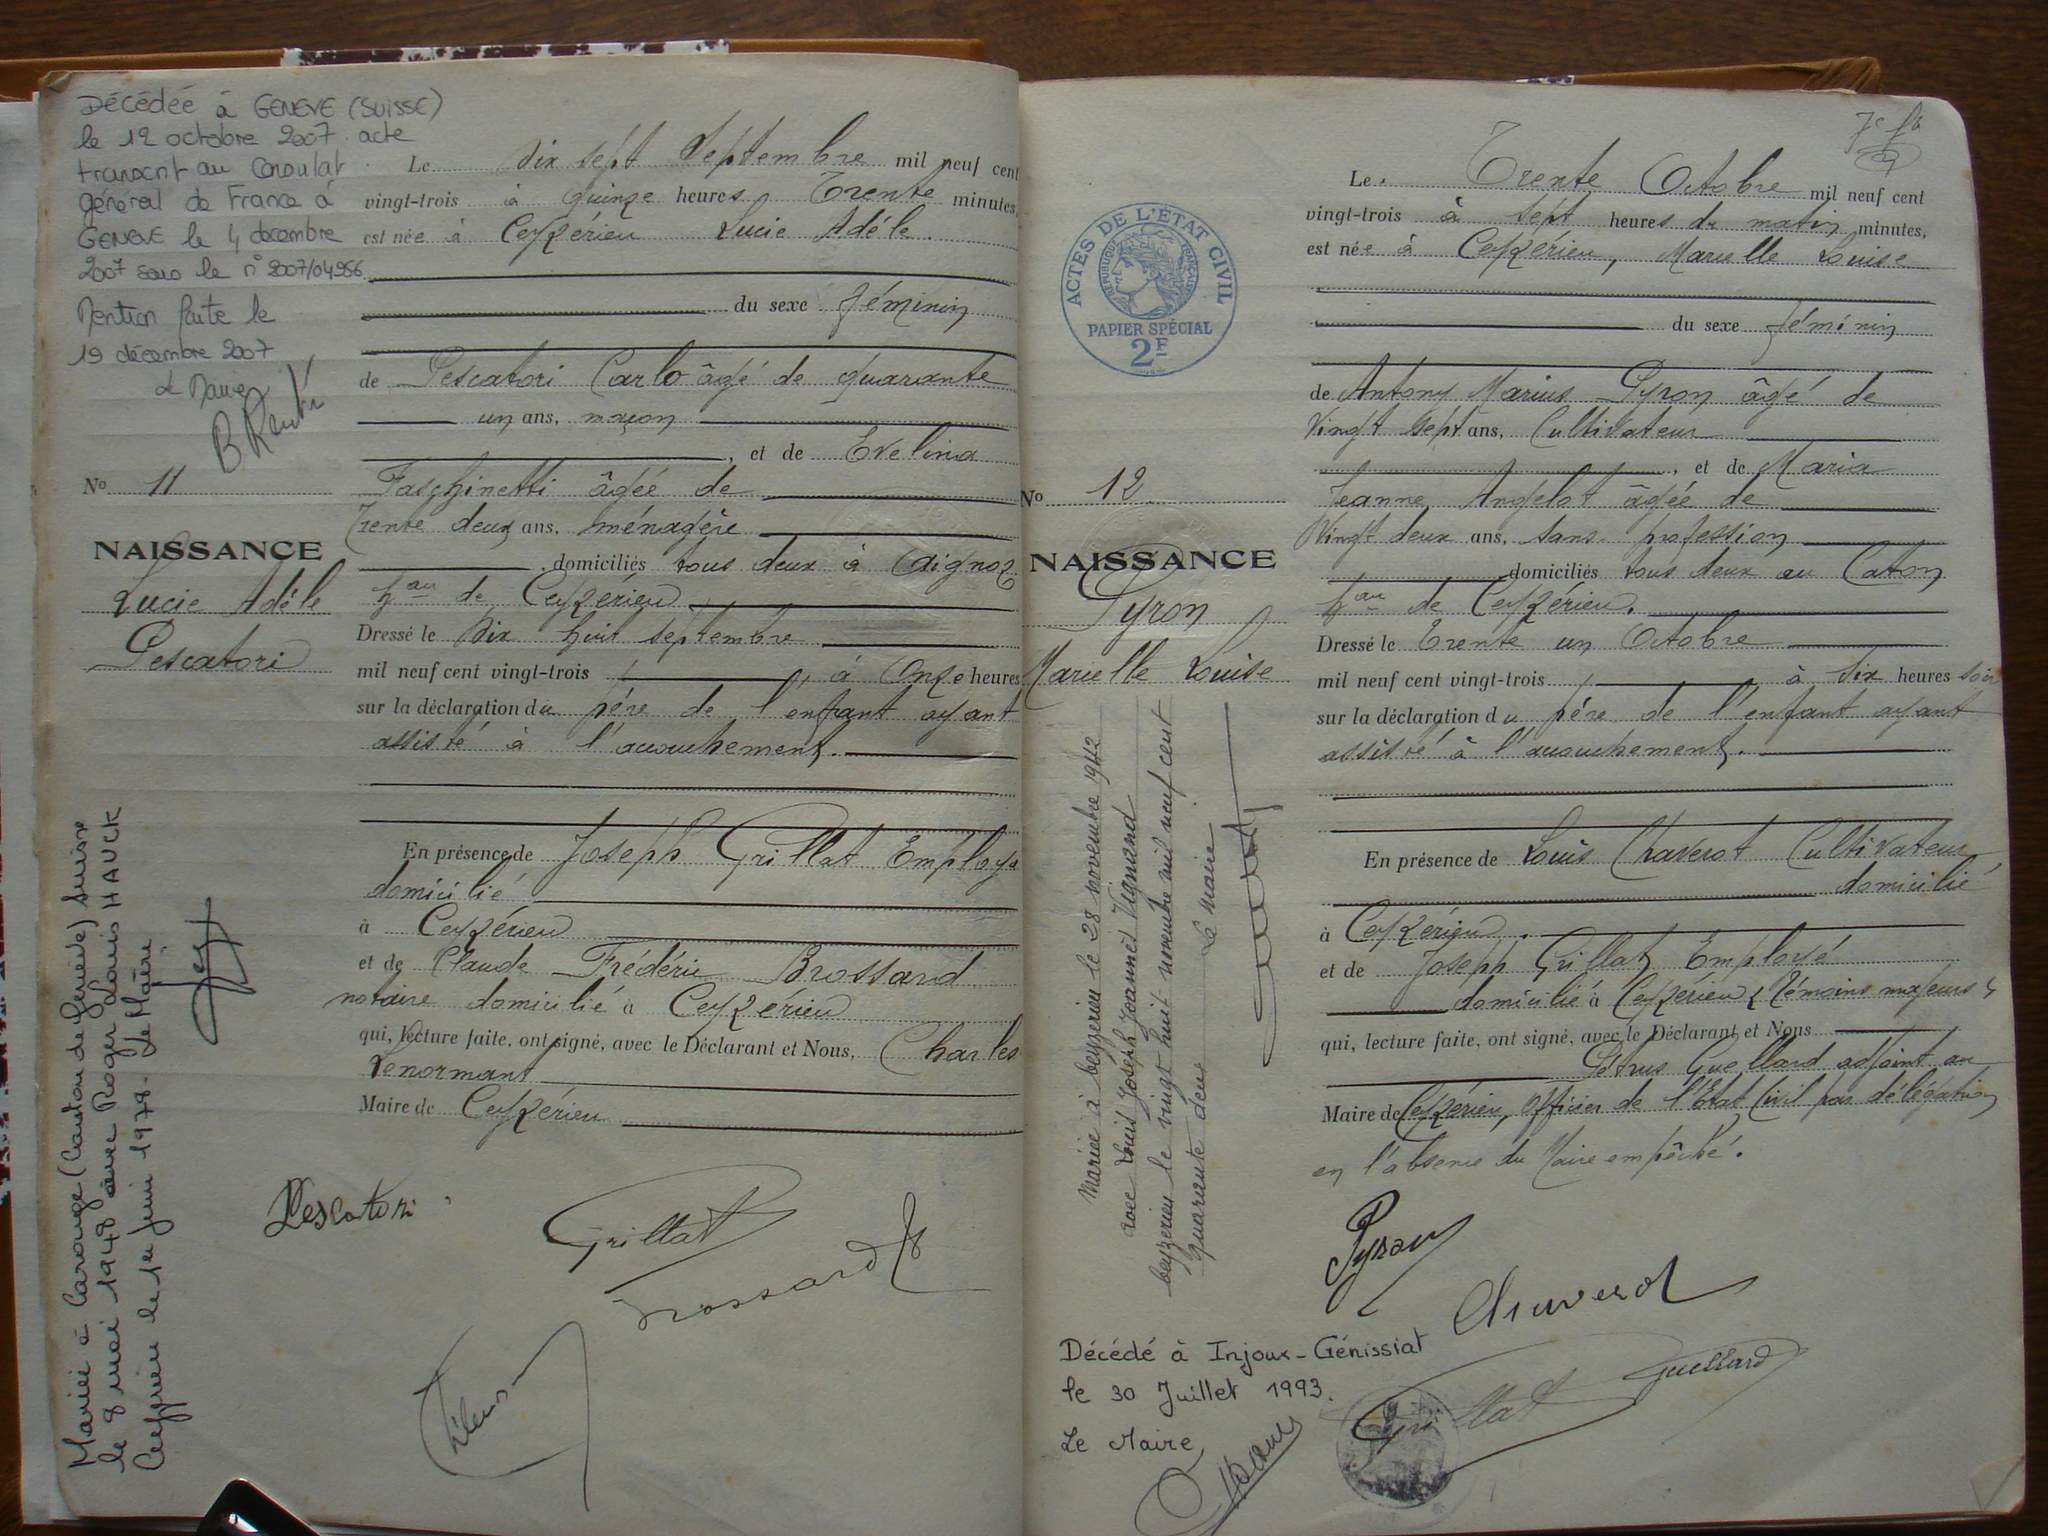 Décédée à GENEVE (SUISSE)
le 12 octobre 2007. acte
transcrit au Consulat
général de France à
GENEVE le 4 decembre
2007 sous le n° 2007/04956
Mention faite le
19 décembre 2007
Le Maire
No 11
NAISSANCE
Lucie Adèle
Pescatori
Mariée à Carouge (Canton de Genève) Suisse
le 8 mai 1948 avec Roger Louis HAUCK
Ceyzérieu le 1er juin 1978. Le Maire
Le dix sept Septembre mil neuf cent
vingt-trois à quinze heures Trente minutes,
est née à Ceyzérieu Lucie Adèle.
du sexe féminin
de Pescatori Carlo âgé de quarante
un ans, maçon
, et de Evelina
Faschinetti âgée de
Trente deux ans, ménagère
, domiciliés tous deux à Aignoz
hau de Ceyzérieu
Dressé le Dix huit septembre
mil neuf cent vingt-trois, à Onze heures
sur la déclaration du père de l'enfant ayant
assisté à l'accouchement.
En présence de Joseph Grillat Employé
domicilié
à Ceyzérieu
et de Claude Frédéric Brossard
notaire domicilié à Ceyzérieu
qui, lecture faite, ont signé, avec le Déclarant et Nous, Charles
Lenormant
Maire de Ceyzérieu
Pescatori
Grillat
Brossard
ACTES DE L'ÉTAT CIVIL
RÉPUBLIQUE FRANÇAISE
PAPIER SPÉCIAL
2F
No 12
NAISSANCE
Pyron
Marcelle Louise
Mariée à Ceyzérieu le 28 novembre 1942
avec Louis Joseph Joannès Vignand
Ceyzérieu le vingt huit novembre mil neuf cent
quarante deux Le Maire
Le Trente Octobre mil neuf cent
vingt-trois à sept heures du matin minutes,
est née à Ceyzérieu, Marcelle Louise
du sexe féminin
de Antony Marius Pyron âgé de
Vingt sept ans, Cultivateur
, et de Maria
Jeanne Angelot âgée de
Vingt deux ans, sans profession
domiciliés tous deux au Caton
hau de Ceyzérieu.
Dressé le Trente un Octobre
mil neuf cent vingt-trois, à Six heures soir
sur la déclaration du père de l'enfant ayant
assisté à l'accouchement.
En présence de Louis Chaverot Cultivateur
domicilié
à Ceyzérieu.
et de Joseph Grillat Employé
domicilié à Ceyzérieu (Témoins majeurs)
qui, lecture faite, ont signé, avec le Déclarant et Nous
Pétrus Guellard adjoint au
Maire de Ceyzérieu, officier de l'État Civil par délégation
en l'absence du Maire empêché.
Pyron
Chaverot
Grillat
Guellard
Décédé à Injoux-Génissiat
le 30 Juillet 1993.
Le Maire